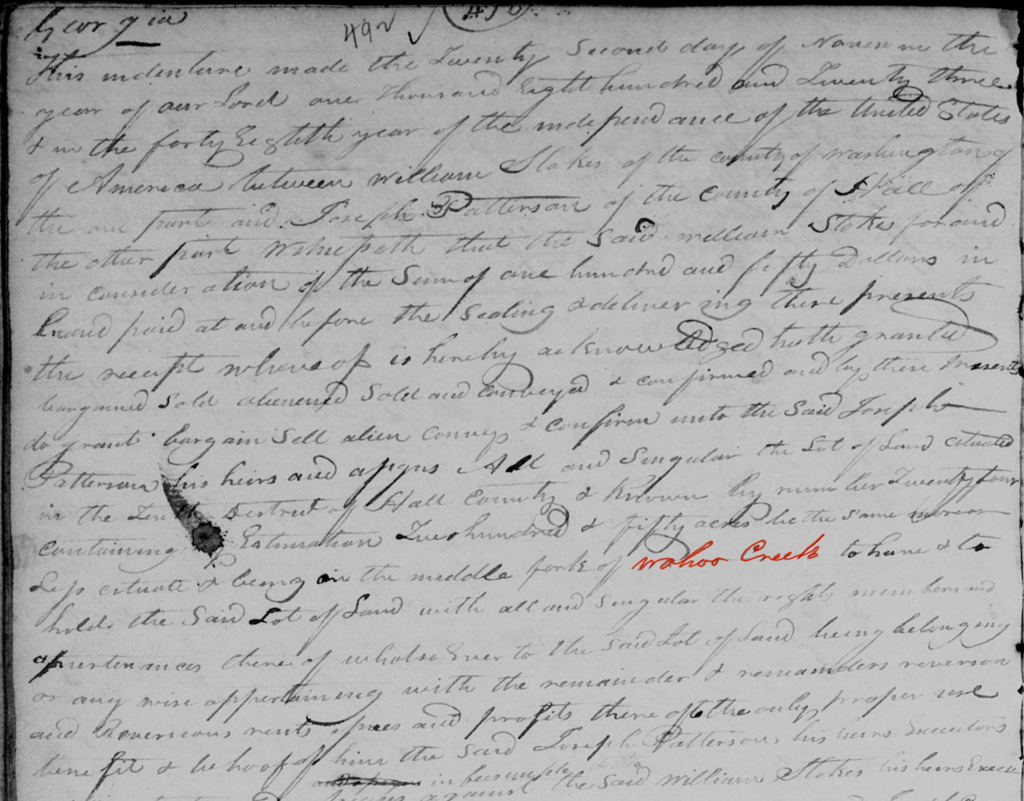 Georgia
492 ✓
This indenture made the Twenty Second day of Novem in the
year of our Lord one thousand Eight hundred and Twenty three
& in the forty Eighth year of the independance of the United States
of America between William Stokes of the county of Washington of
the one part and Joseph Patterson of the County of Hall of
the other part Witnesseth that the Said William Stokes for and
in consideration of the Sum of one hundrd and fifty Dollars in
hand paid at and before the Sealing & delivering these presents
the receipt whereof is hereby acknowledged hath granted
bargained Sold aliened Sold and Conveyed & confirmed and by these presents
do grant bargain Sell alien convey & confirm unto the Said Joseph
Patterson his heirs and assigns All and Singular the Lot of Land cituated
in the Tenth District of Hall County & Known by number Twenty four
containing Estimation Two hundred & fifty acres be the same more or
Less cituate & being on the middle fork of wahoo Creek to have & to
hold the Said Lot of Land with all and Singular the rights members and
apurtenances there of whatso Ever to the Said Lot of Land being belonging
or any wise appertaining with the remainder & remainders reverson
and Reversions rents isues and profits there of to the only proper use
benefit & behoof of him the Said Joseph Patterson his heirs Executors
in feesimple
against the Said William Stokes his heirs